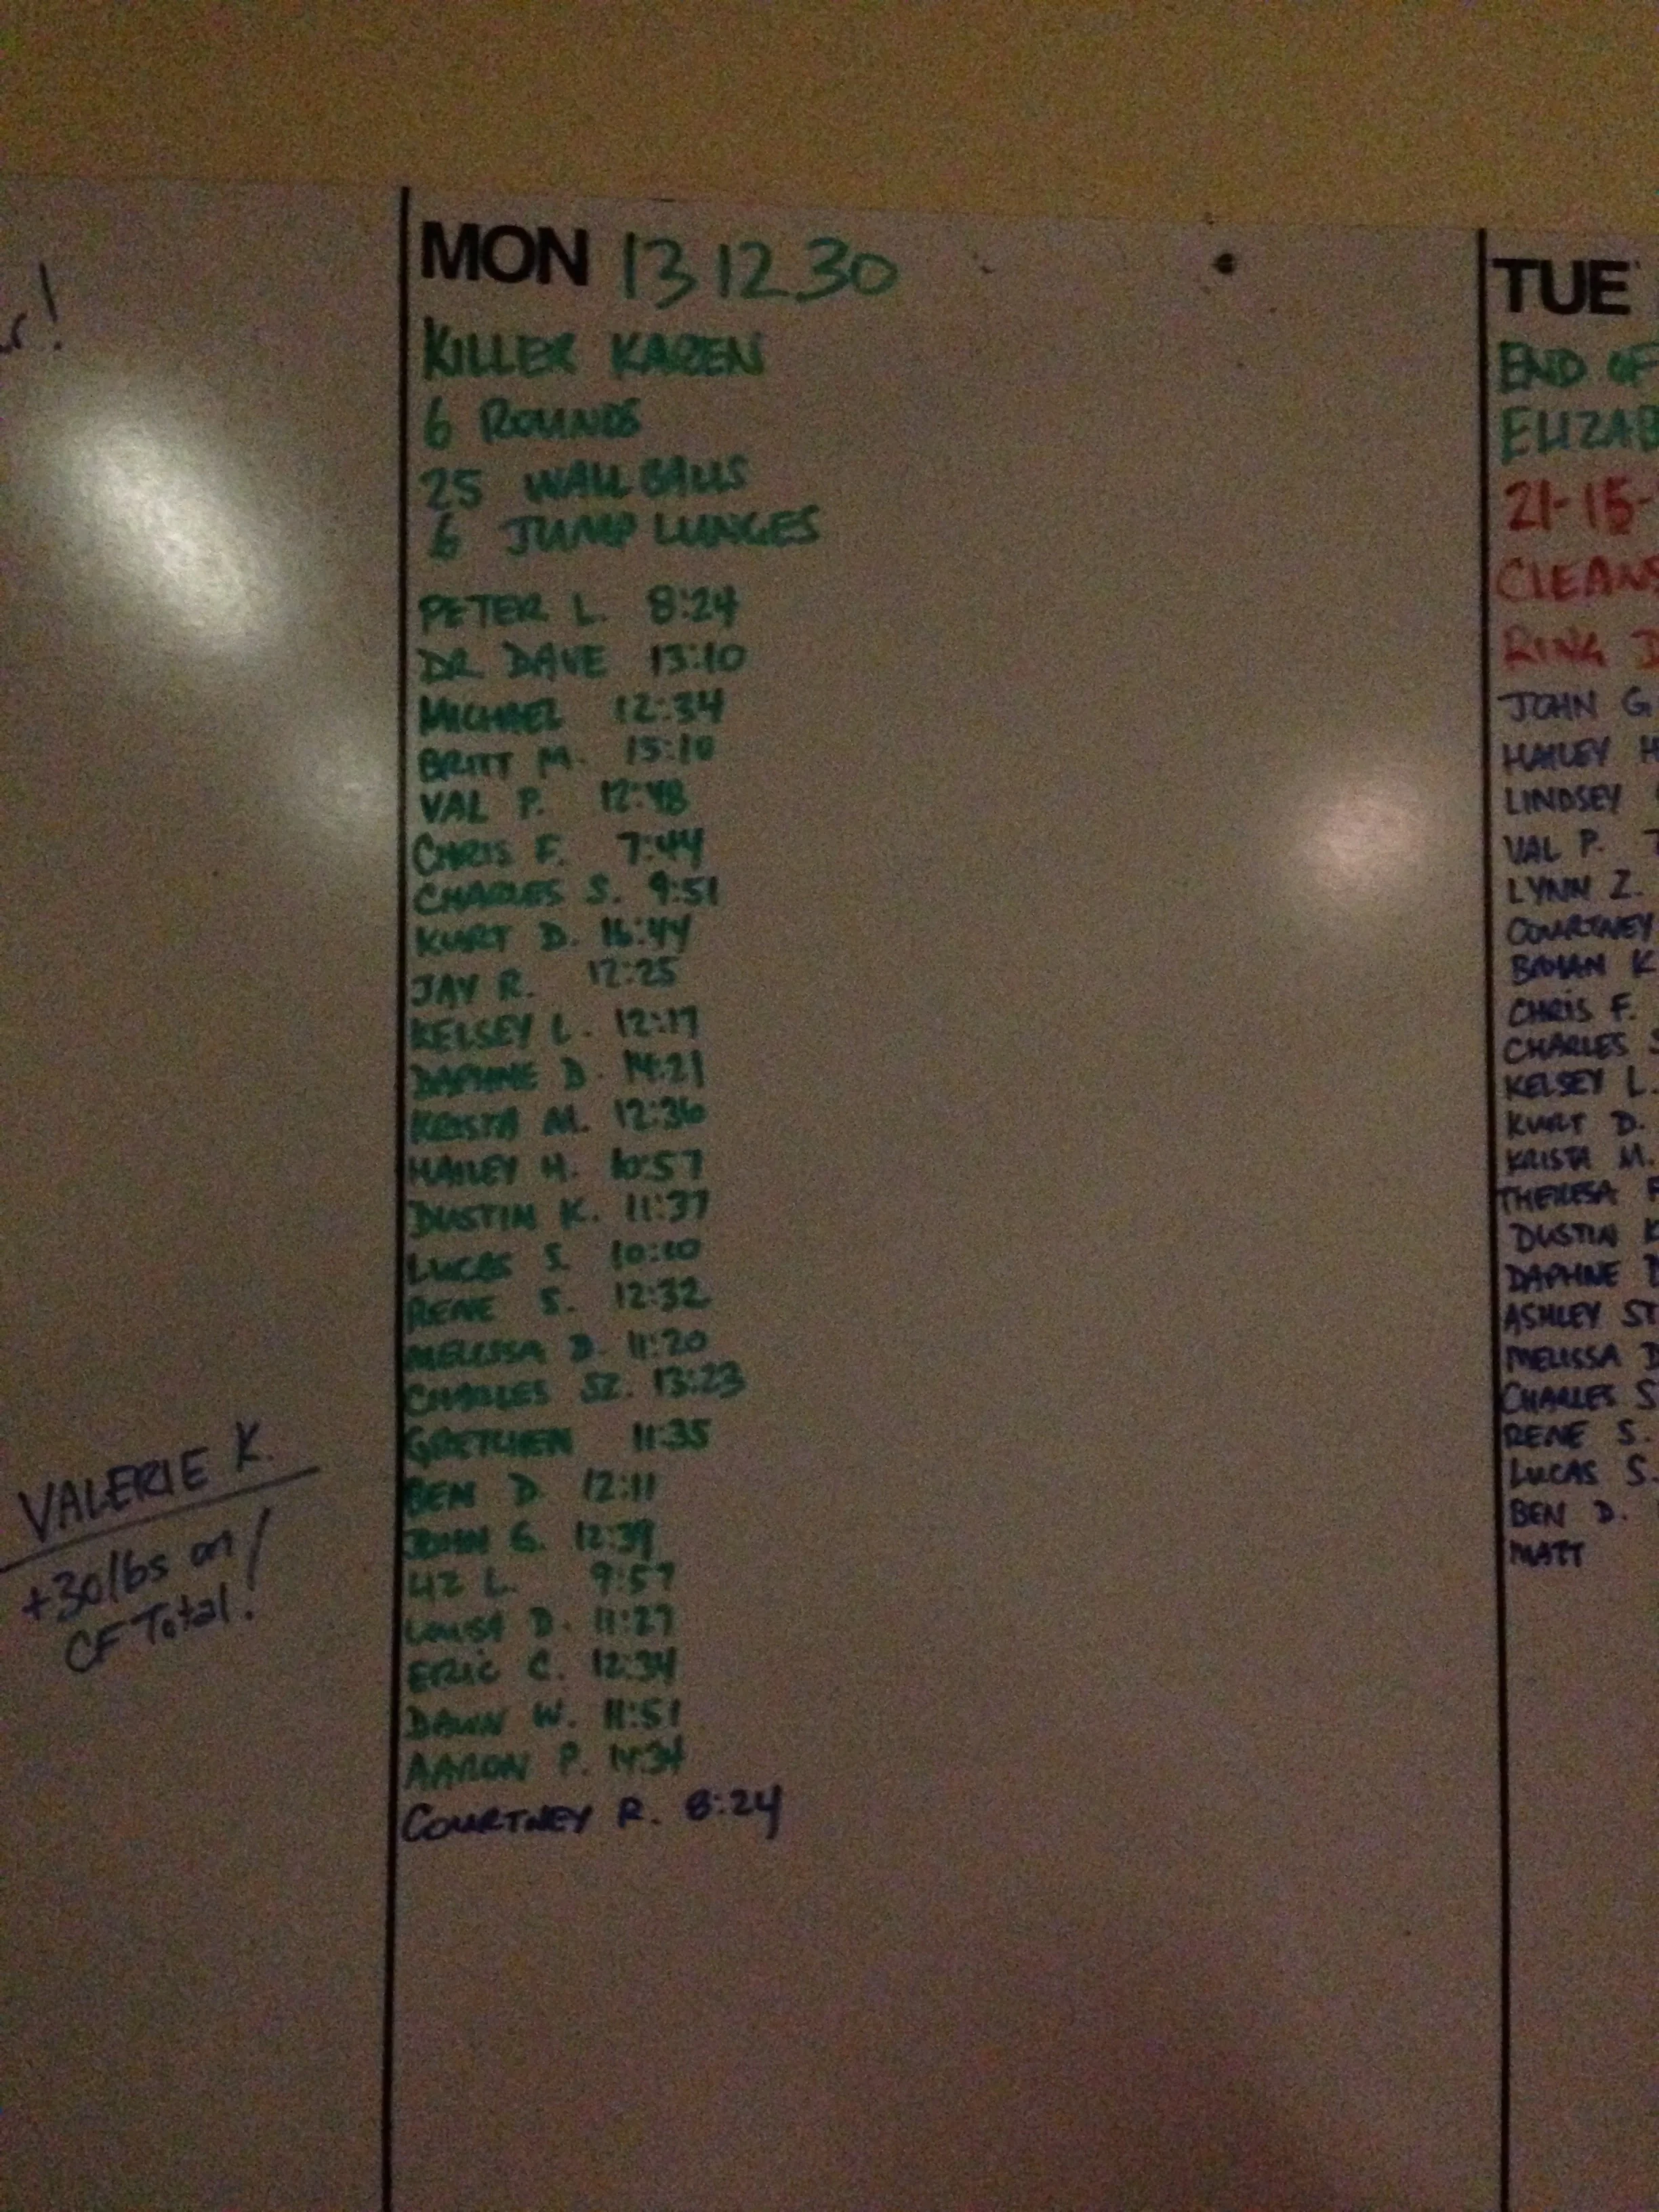 VALERIE K.
+30lbs on
CF Total!
MON 13 12 30
KILLER KAREN
6 ROUNDS
25 WALL BALLS
6 JUMP LUNGES
PETER L. 8:24
DR. DAVE 13:10
MICHAEL 12:34
BRITT M. 15:10
VAL P. 12:48
CHRIS F. 7:44
CHARLES S. 9:51
KURT D. 16:44
JAY R. 12:25
KELSEY L. 12:17
DAPHNE D. 14:21
KRISTA M. 12:36
HAILEY H. 10:57
DUSTIN K. 11:37
LUCAS S. 10:10
RENE S. 12:32
MELISSA D. 11:20
CHARLES SZ. 13:23
GRETCHEN 11:35
BEN D. 12:11
JOHN G. 12:39
LIZ L. 9:57
LOUISA D. 11:27
ERIC C. 12:34
DAWN W. 11:51
AARON P. 14:34
COURTNEY R. 8:24
TUE
END OF
ELIZAB
21-15-
CLEANS
RING D
JOHN G.
HAILEY H
LINDSEY
VAL P.
LYNN Z.
COURTNEY
K
CHRIS F.
CHARLES S
KELSEY L.
KURT D.
KRISTA M.
THERESA
DUSTIN K
DAPHNE D
ASHLEY ST
MELISSA D
CHARLES S
RENE S.
LUCAS S.
BEN D.
MATT